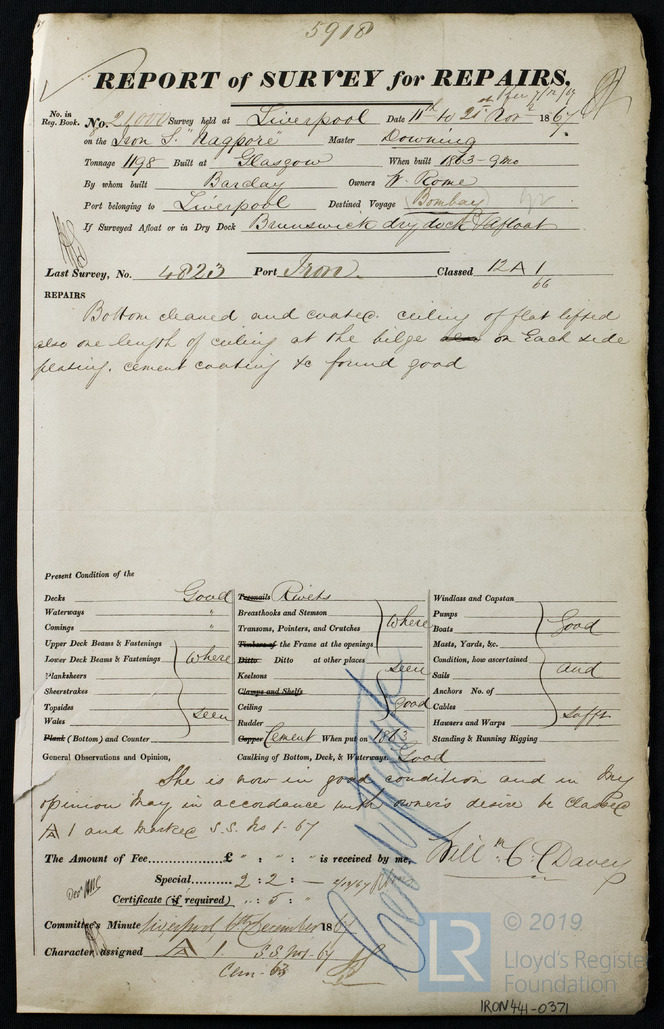 5918
REPORT of SURVEY for REPAIRS.
No. in Reg. Book. No. Survey held at Liverpool Date 11th to 21st Novr 1867
on the Iron S. "Nagpore" Master Downing
Tonnage 1198 Built at Glasgow When built 1863-9mo
By whom built Barclay Owners W. Rome
Port belonging to Liverpool Destined Voyage Bombay
If Surveyed Afloat or in Dry Dock Brunswick dry dock & afloat
Last Survey, No. 4823 Port Iron Classed 12 A 1
66
REPAIRS
Bottom cleaned and coated. ceiling of flat lifted
also one length of ceiling at the bilge on Each side
plating, cement coating &c found good
Present Condition of the
Decks Good
Waterways "
Comings "
Upper Deck Beams & Fastenings
Lower Deck Beams & Fastenings where
Planksheers
Sheerstrakes
Topsides seen
Wales
Plank (Bottom) and Counter
Treenails Rivets
Breasthooks and Stemson
Transoms, Pointers, and Crutches where
Timbers of the Frame at the openings
Ditto Ditto at other places seen
Keelsons
Clamps and Shelfs
Ceiling good
Rudder
Copper Cement When put on 1863
Caulking of Bottom, Deck, & Waterways Good
Windlass and Capstan
Pumps
Boats Good
Masts, Yards, &c.
Condition, how ascertained
Sails and
Anchors No. of
Cables
Hawsers and Warps Safft
Standing & Running Rigging
General Observations and Opinion,
She is now in good condition and in my
opinion may in accordance with owner's desire be classed
A 1 and marked S.S. No 1-67
The Amount of Fee £ " : " : " is received by me,
Willm C. C. Davey
Special 2 : 2 : -
Certificate (if required) : 5 : "
Committee's Minute Liverpool, 6th December 1867
Character assigned A 1. S.S. No 1-67
Cem-63
© 2019
LR
Lloyd's Register
Foundation
IRON441-0371